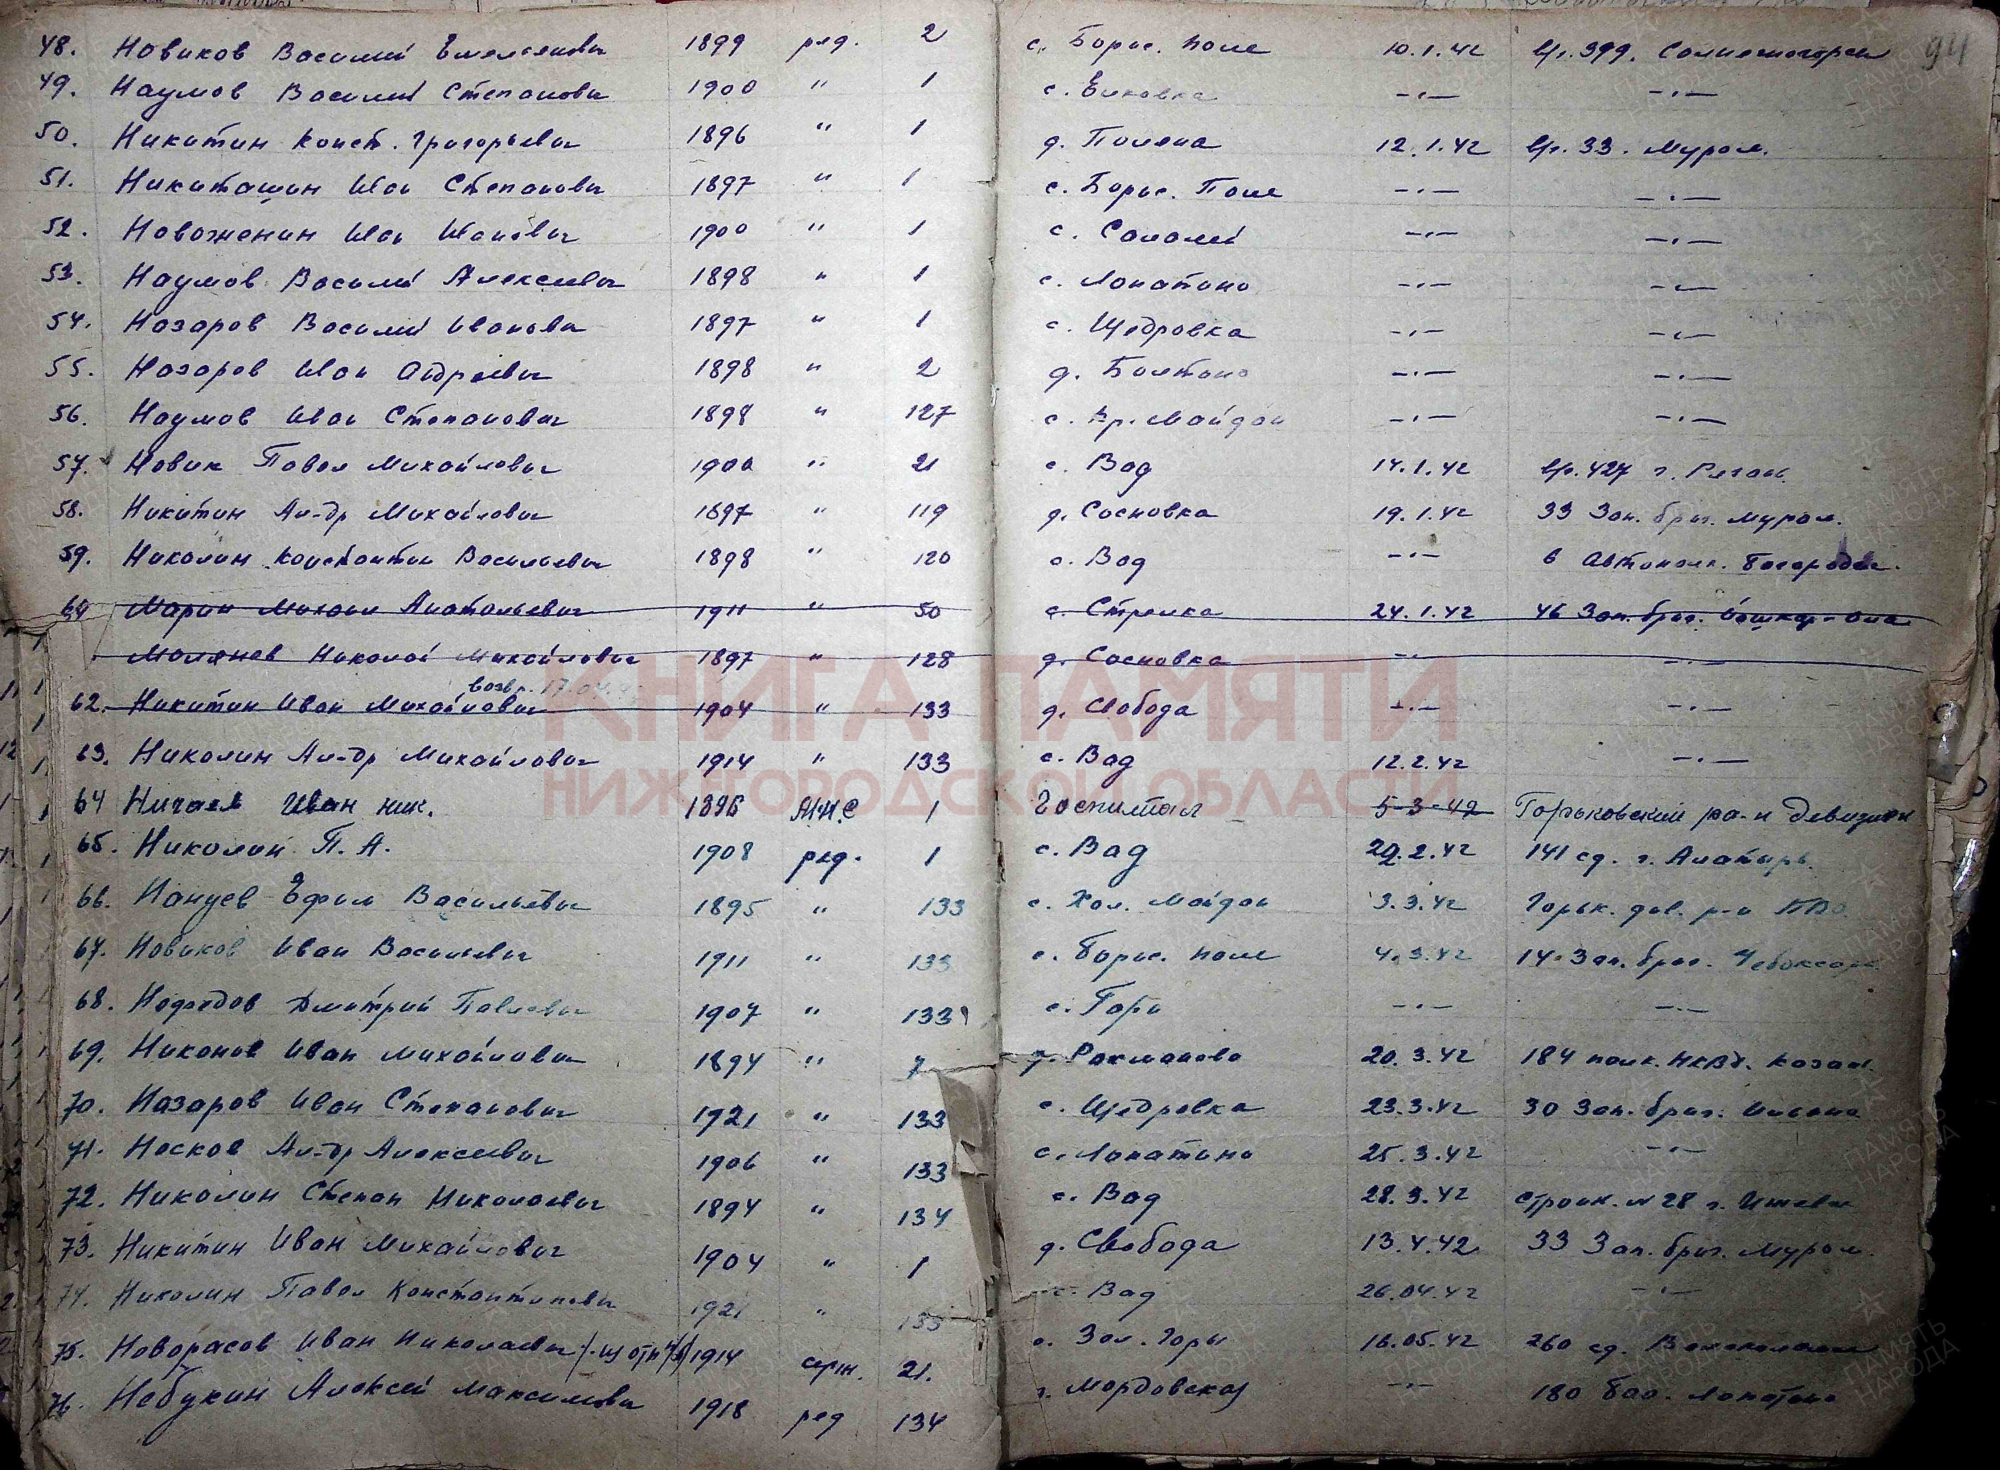 94
48. Новиков Василий Емельянович 1899 ряд. 2 с. Борис. Поле 10.1.42 в/ч. 399. Солнечногорск
49. Наумов Василий Степанович 1900 " 1 с. Еиковка -"- -"-
50. Никитин Конст. Григорьевич 1896 " 1 д. Поляна 12.1.42 в/ч. 33. Муром.
51. Никиташин Иван Степанович 1897 " 1 с. Борис. Поле -"- -"-
52. Новоженин Иван Иванович 1900 " 1 с. Салалей -"- -"-
53. Наумов Василий Алексеевич 1898 " 1 с. Лопатино -"- -"-
54. Назаров Василий Иванович 1897 " 1 с. Щедровка -"- -"-
55. Назаров Иван Андреевич 1898 " 2 д. Болтино -"- -"-
56. Наумов Иван Степанович 1898 " 127 с. Кр. Майдан -"- -"-
57. Новик Павел Михайлович 1900 " 21 с. Вад 14.1.42 в/ч. 427 г. Рязань
58. Никитин Ал-др Михайлович 1897 " 119 д. Сосновка 19.1.42 33 Зап. бриг. Муром.
59. Николин Константин Васильевич 1898 " 120 с. Вад -"- 6 Автополк. Богородск.
60 Марин Михаил Анатольевич 1911 " 50 с. Стрелка 24.1.42 46 Зап. бриг. Йошкар-Ола
Молянев Николай Михайлович 1897 " 128 д. Сосновка -"- -"-
возвр. 17.04.
62. Никитин Иван Михайлович 1904 " 133 д. Свобода -"- -"-
63. Николин Ал-др Михайлович 1914 " 133 с. Вад 12.2.42 -"-
64 Ничаев Иван Ник. 1896 М.Н.С 1 Госпиталь 5-3-42 Горьковский ра-н Девизион
65. Николин П. А. 1908 ряд. 1 с. Вад 22.2.42 141 сд. г. Алатырь.
66. Нануев Ефим Васильевич 1895 " 133 с. Хол. Майдан 3.3.42 Горьк. див. р-н ПВО
67. Новиков Иван Васильевич 1911 " 133 с. Борис. Поле 4.3.42 14 Зап. бриг. Чебоксары
68. Нефедов Дмитрий Павлович 1907 " 133 с. Горы -"- -"-
69. Никонов Иван Михайлович 1894 " 7 д. Рахманово 20.3.42 184 полк. НКВД. Казань
70. Назаров Иван Степанович 1921 " 133 с. Щедровка 23.3.42 30 Зап. бриг.
71. Носков Ал-др Алексеевич 1906 " 133 с. Лопатино 25.3.42 -"-
72. Николин Степан Николаевич 1894 " 134 с. Вад 28.3.42 строит. № 28 г. Ижевск
73. Никитин Иван Михайлович 1904 " 1 д. Свобода 13.4.42 33 Зап. бриг. Муром.
74. Николин Павел Константинович 1921 " 133 с. Вад 26.04.42 -"-
75. Новорасов Иван Николаевич 1914 серж. 21. с. Зел. Горы 16.05.42 260 сд. Волоколамск
76. Небукин Алексей Максимович 1918 ряд 134 г. Мордовской -"- 180 бао. Лопатино
КНИГА ПАМЯТИ
НИЖГОРОДСКОЙ ОБЛАСТИ
ПАМЯТЬ НАРОДА